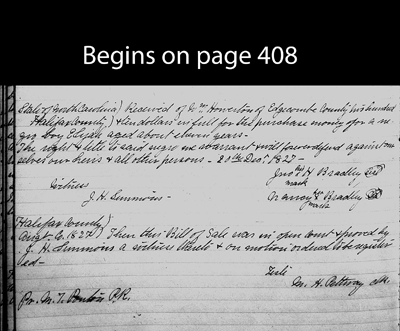 Begins on page 408
State of North Carolina) Received of Wm Howerton of Edgecombe County six hundred
Halifax County) & ten dollars in full for the purchase money of for a ne-
gro boy aged about eleven years -
The right & title to said negro we warrant & will forever defend against our
selves our heirs & all other persons - 20th Decr 1827 -
H Bradley seal
mark
witness Nancy Bradley seal
J. H. Simmons - mark
Halifax County)
1827) Then this Bill of Sale was in open court proved by
J. H. Simmons a witness thereto & on motion ordered to be register
ed -
Teste
M. H. Pettway clk.
Pr. M. T. Ponton P.R.